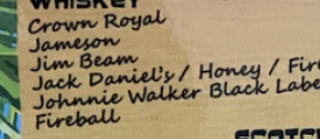 WHISKEY
Crown Royal
Jameson
Jim Beam
Jack Daniel's / Honey / Fir
Johnnie Walker Black Labe
Fireball
SCOTC